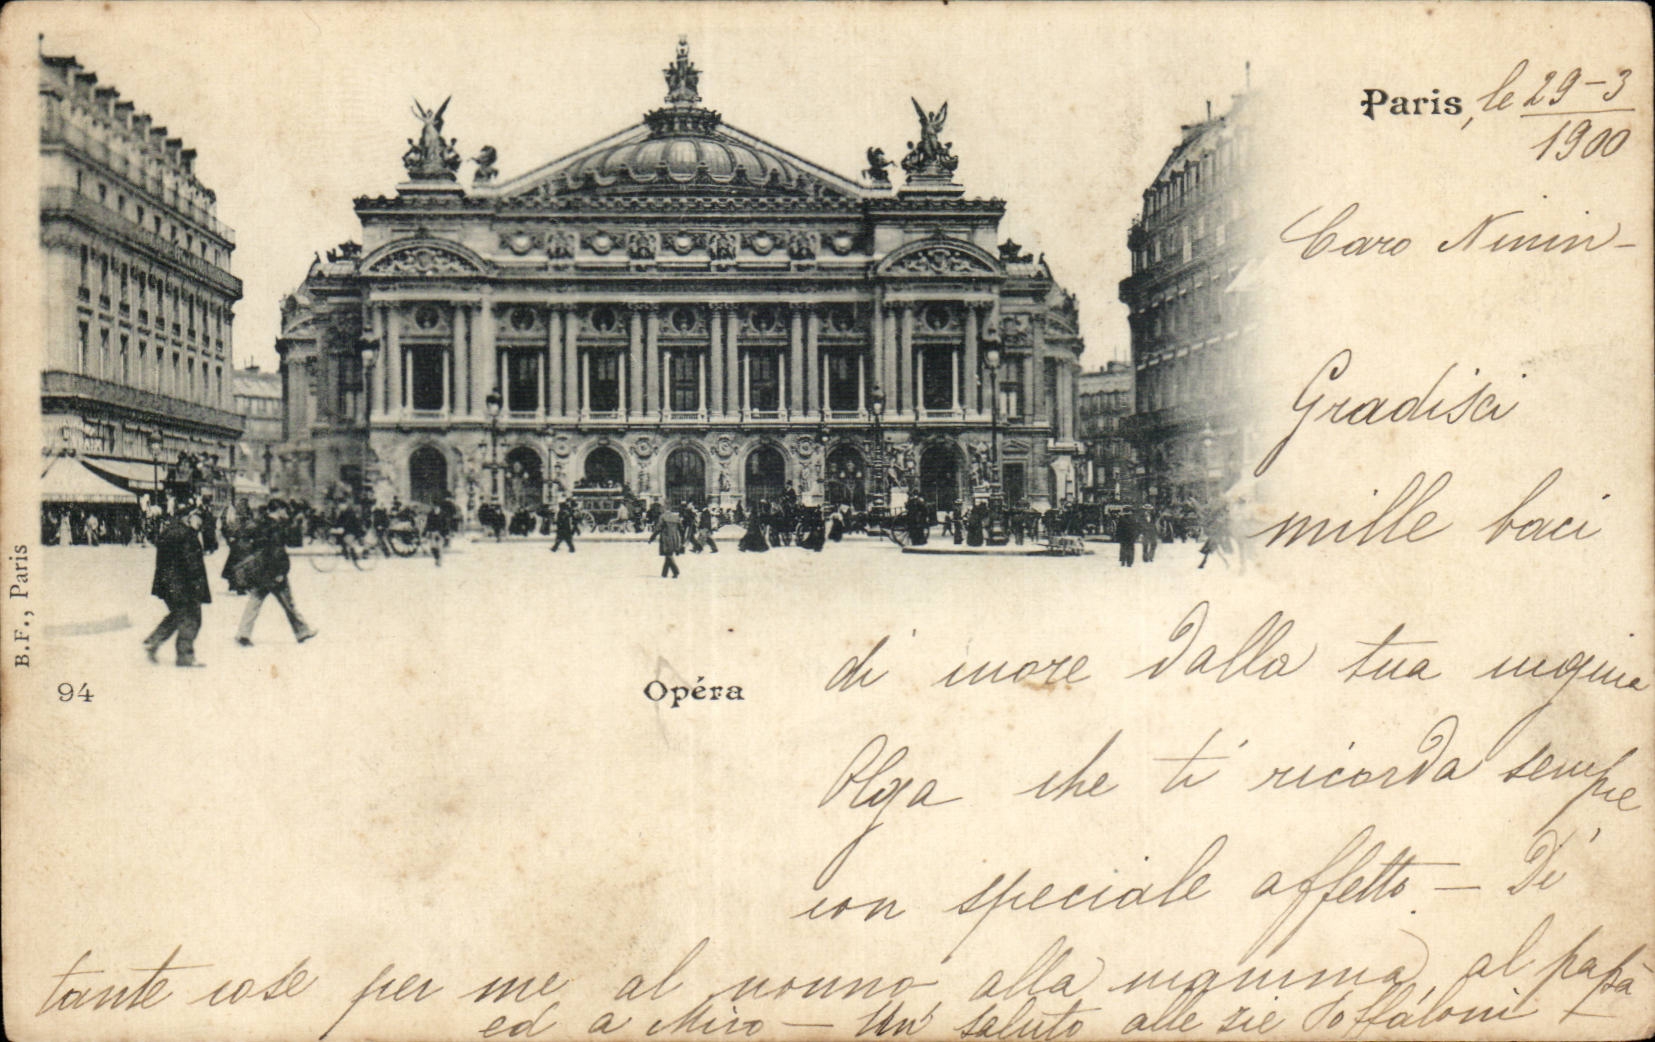 Paris, le 29-3
1900
Caro Ninin-
Gradisci
mille baci
di more dalla tua
Olga che ti ricorda sempre
con speciale affetto — Di'
tante cose per me al nonno alla mamma, al papà
ed a Miro — Un saluto alle zie
Opéra
94
B.F., Paris